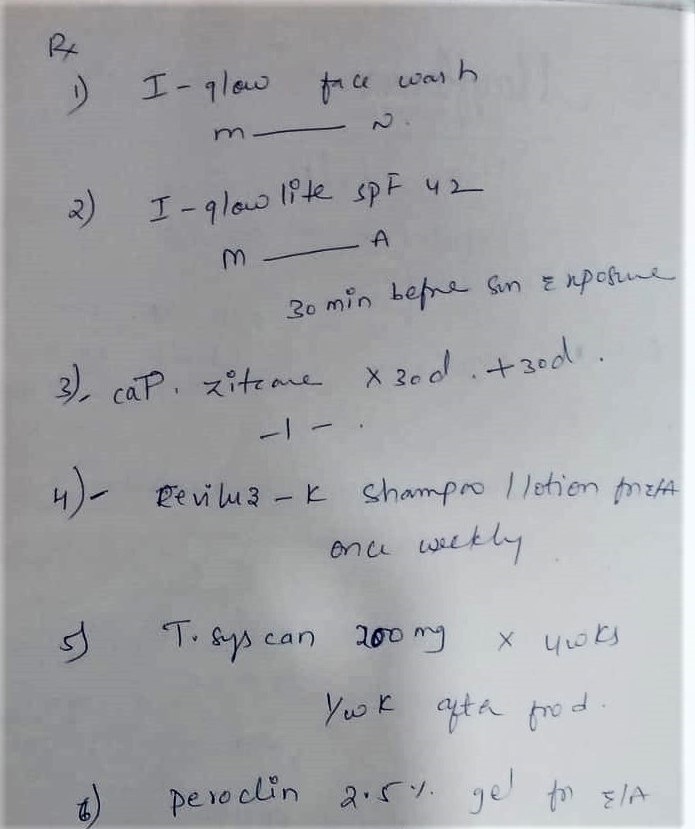 Rx
1) I-glow face wash
m — N.
2) I-glow lite SPF 42
m — A
30 min before sun Exposure
3)- CaP. zitcare x 30d. +30d.
-1-.
4)- Revilus-K Shampoo / lotion for E/A
once weekly
5) T. Syscan 200 mg x 4wks
1/wk after food.
6) peroclin 2.5%. gel for E/A